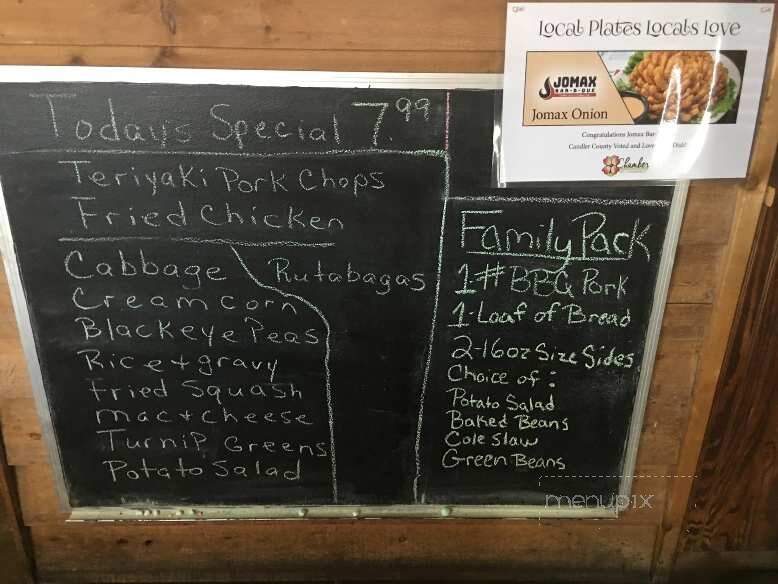 Todays Special 7.99
Teriyaki Pork Chops
Fried Chicken
Cabbage
Rutabagas
Cream corn
Blackeye Peas
Rice + gravy
Fried Squash
mac + cheese
Turnip Greens
Potato Salad
Family Pack
1# BBQ Pork
1-Loaf of Bread
2-16oz Size Sides
Choice of:
Potato Salad
Baked Beans
Cole Slaw
Green Beans
Local Plates Locals Love
JOMAX
BAR-B-QUE
Jomax Onion
Congratulations Jomax Bar
Candler County Voted and Love
Chamber
menupix